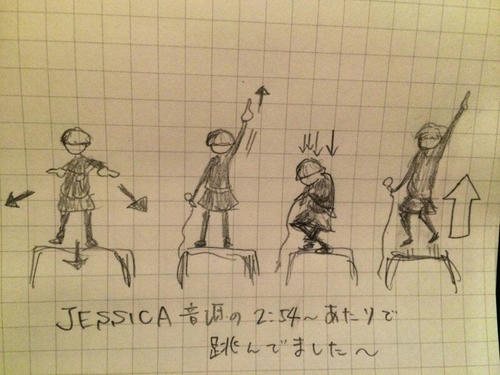 JESSICA 音源の 2:54～あたりで
跳んでました～